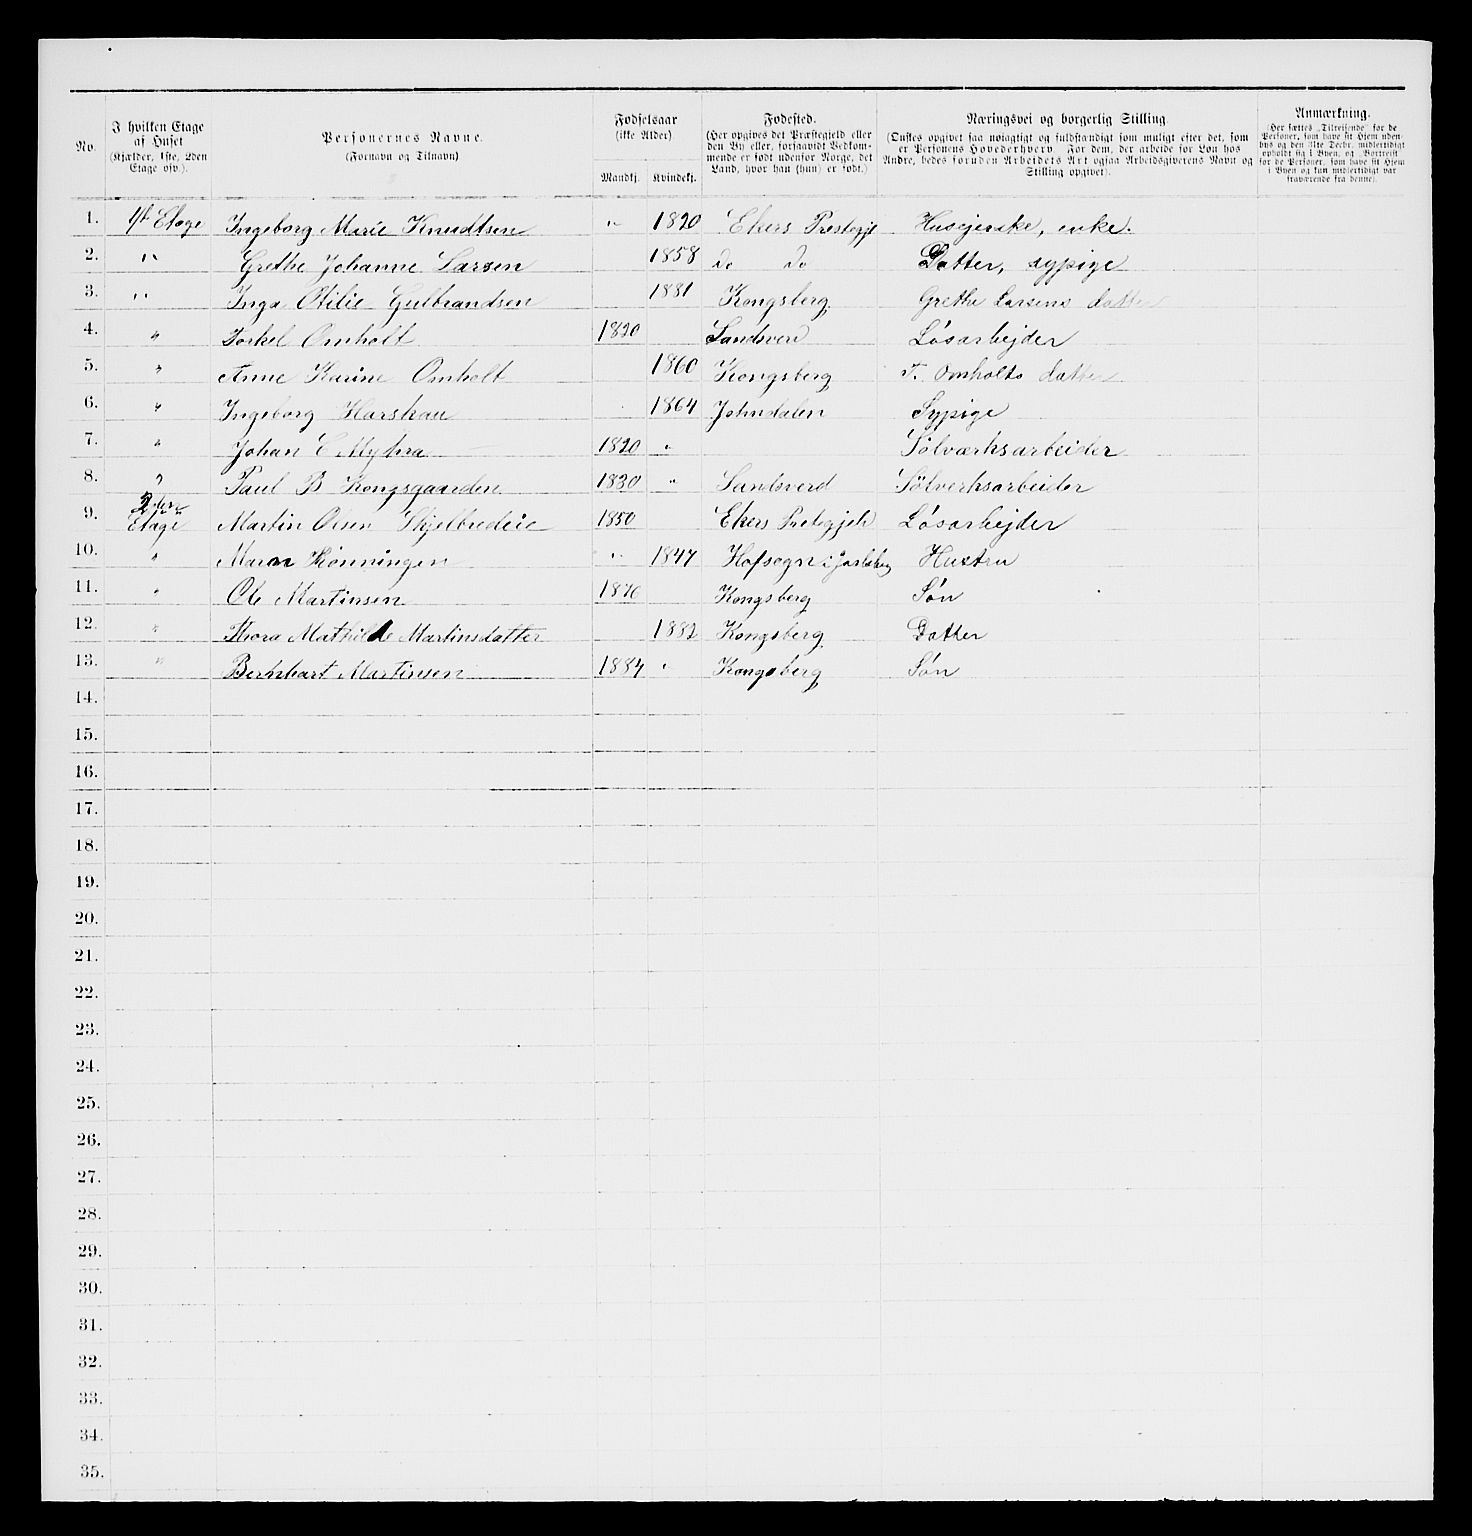 No.
I hvilken Etage af Huset (Kjælder, 1ste, 2den Etage osv.).
Personernes Navne. (Fornavn og Tilnavn)
Fødselsaar (ikke Alder) Mandkj. Kvindekj.
Fødested. (Her opgives det Præstegjeld eller den By eller, forsaavidt Vedkommende er født udenfor Norge, det Land, hvor han (hun) er født.)
Næringsvei og borgerlig Stilling. (Ønskes opgivet saa nøiagtigt og fuldstændigt som muligt efter det, som er Personens Hovederhverv. For dem, der arbeide for Løn hos Andre, bedes foruden Arbeidets Art ogsaa Arbeidsgiverens Navn og Stilling opgivet).
Anmærkning. (Her sættes „Tilreisende" for de Personer, som have sit Hjem udenbys og den 31te Decbr. midlertidigt opholdt sig i Byen, og „Bortreist" for de Personer, som have sit Hjem i Byen og kun midlertidigt var fraværende fra denne).
1. 1st Etage Ingeborg Marie Knudtsen " 1820 Ekers Prestegjl Husejerske, enke.
2. " Grethe Johanne Larsen 1858 do do Datter, sypige
3. " Inga Otilie Gulbrandsen 1881 Kongsberg Grethe Larsens datter
4. " Torkel Omholt 1820 Sandsverd Løsarbejder
5. " Anne Karine Omholt 1860 Kongsberg T. Omholts datter
6. " Ingeborg Horskau 1864 Johndalen Sypige
7. " Johan C Myhra 1820 " Sølværksarbeider
8. " Paul B Kongsgaarden 1830 " Sandsverd Sölverksarbeider
9. 2den Etage Martin Olsen Skjelbredeie 1850 Ekers Pretegjeld Løsarbejder
10. " Maren Rønningen " 1847 Hofsogn i Jarlsberg Hustru
11. " Ole Martinsen 1876 Kongsberg Søn
12. " Thora Mathilde Martinsdatter 1882 Kongsberg Datter
13. " Bernhart Martinsen 1884 " Kongsberg Søn
14.
15.
16.
17.
18.
19.
20.
21.
22.
23.
24.
25.
26.
27.
28.
29.
30.
31.
32.
33.
34.
35.